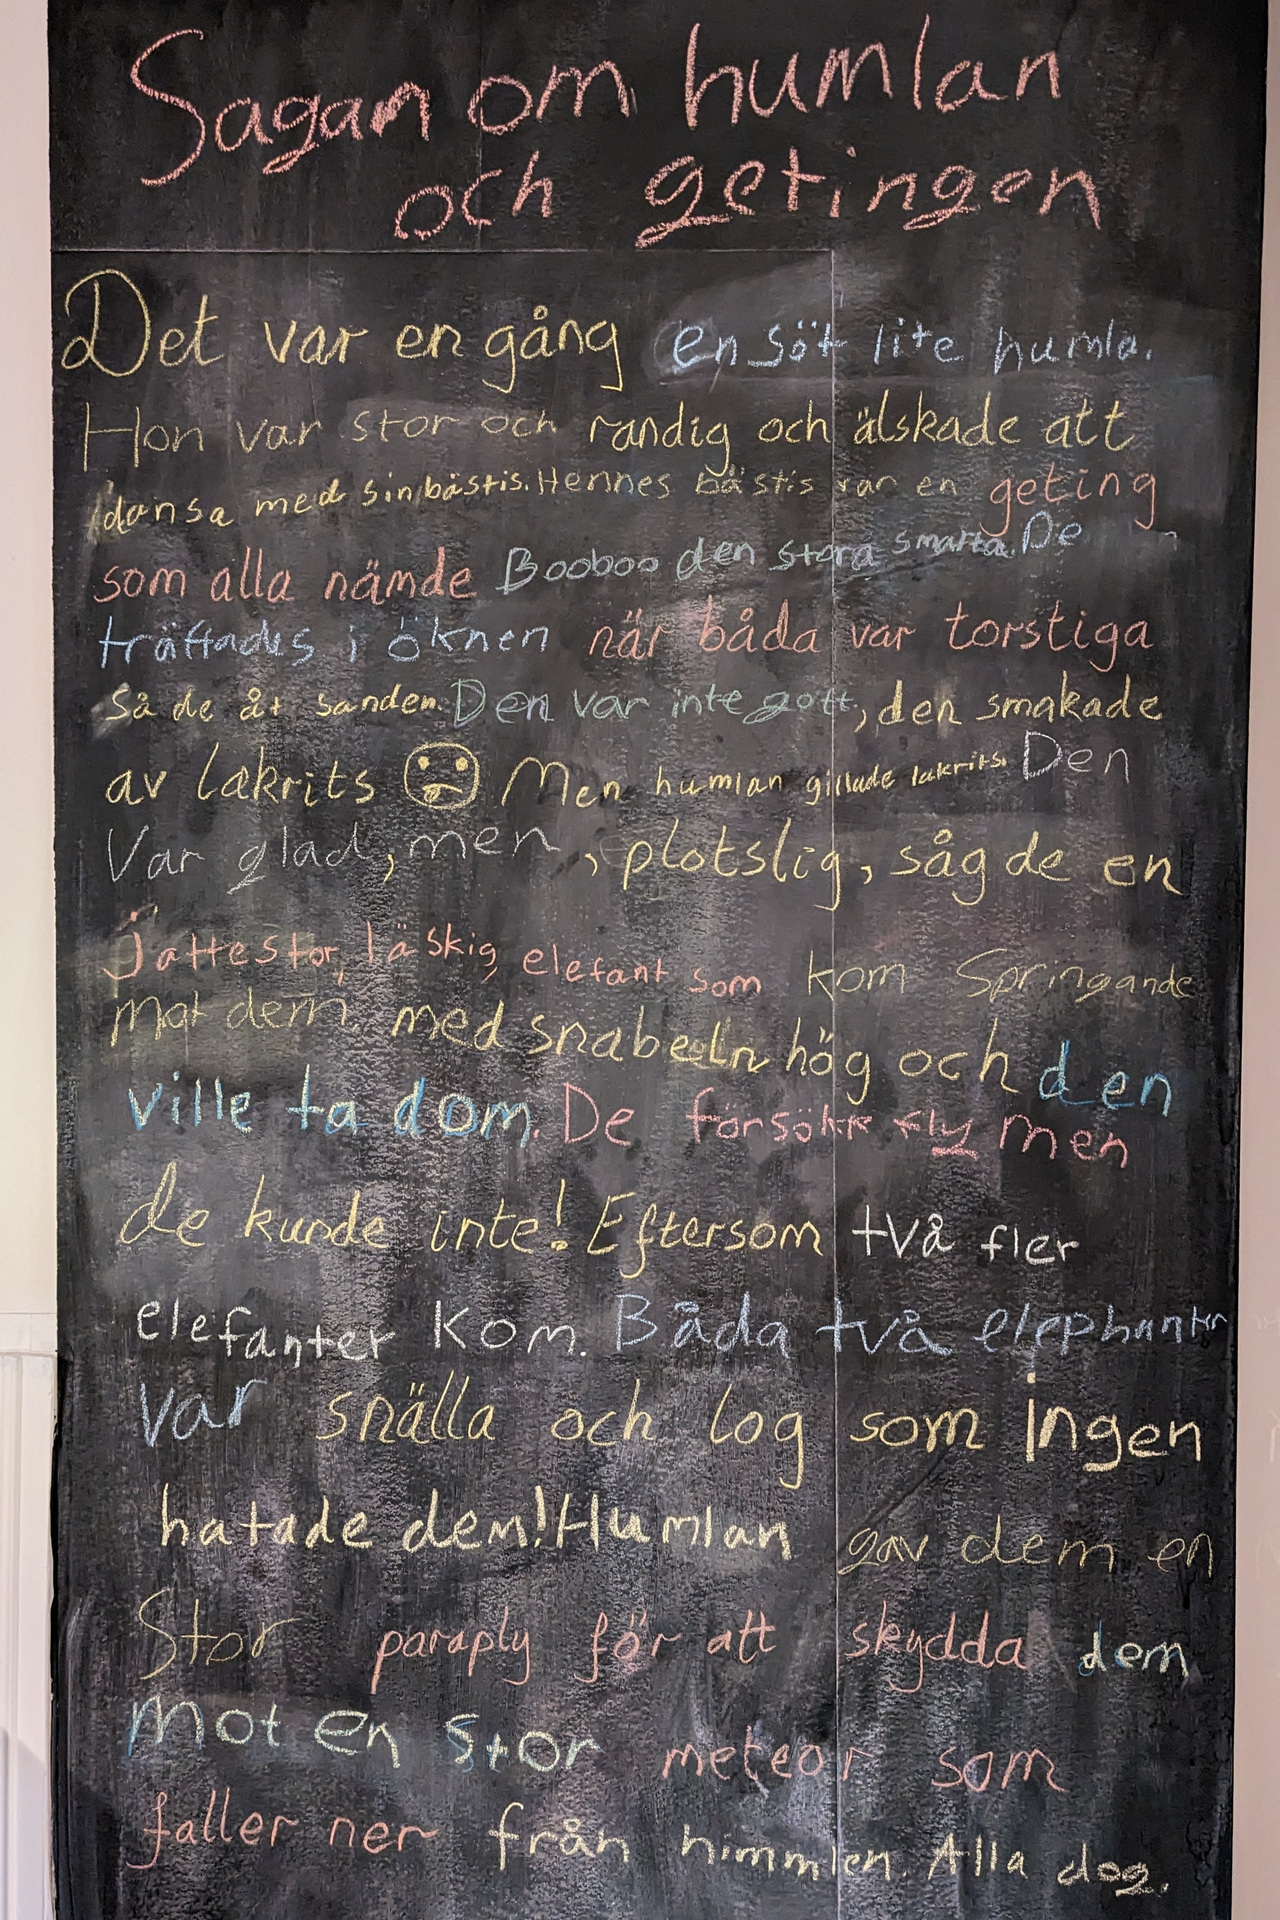 Sagan om humlan
och getingen
Det var en gång en söt lite humla.
Hon var stor och randig och älskade att
dansa med sin bästis. Hennes bästis var en geting
som alla nämde Booboo den stora smarta. De
träffades i öknen när båda var torstiga
så de åt sanden. Den var inte gott, den smakade
av lakrits Men humlan gillade lakrits. Den
var glad, men , plotslig, såg de en
jattestor, läskig elefant som kom springande
mot dem med snabeln hög och den
ville ta dom. De försökte fly men
de kunde inte! Eftersom två fler
elefanter kom. Båda två elephanter
var snälla och log som ingen
hatade dem! Humlan gav dem en
stor paraply för att skydda dem
mot en stor meteor som
faller ner från himmlen. Alla dog.